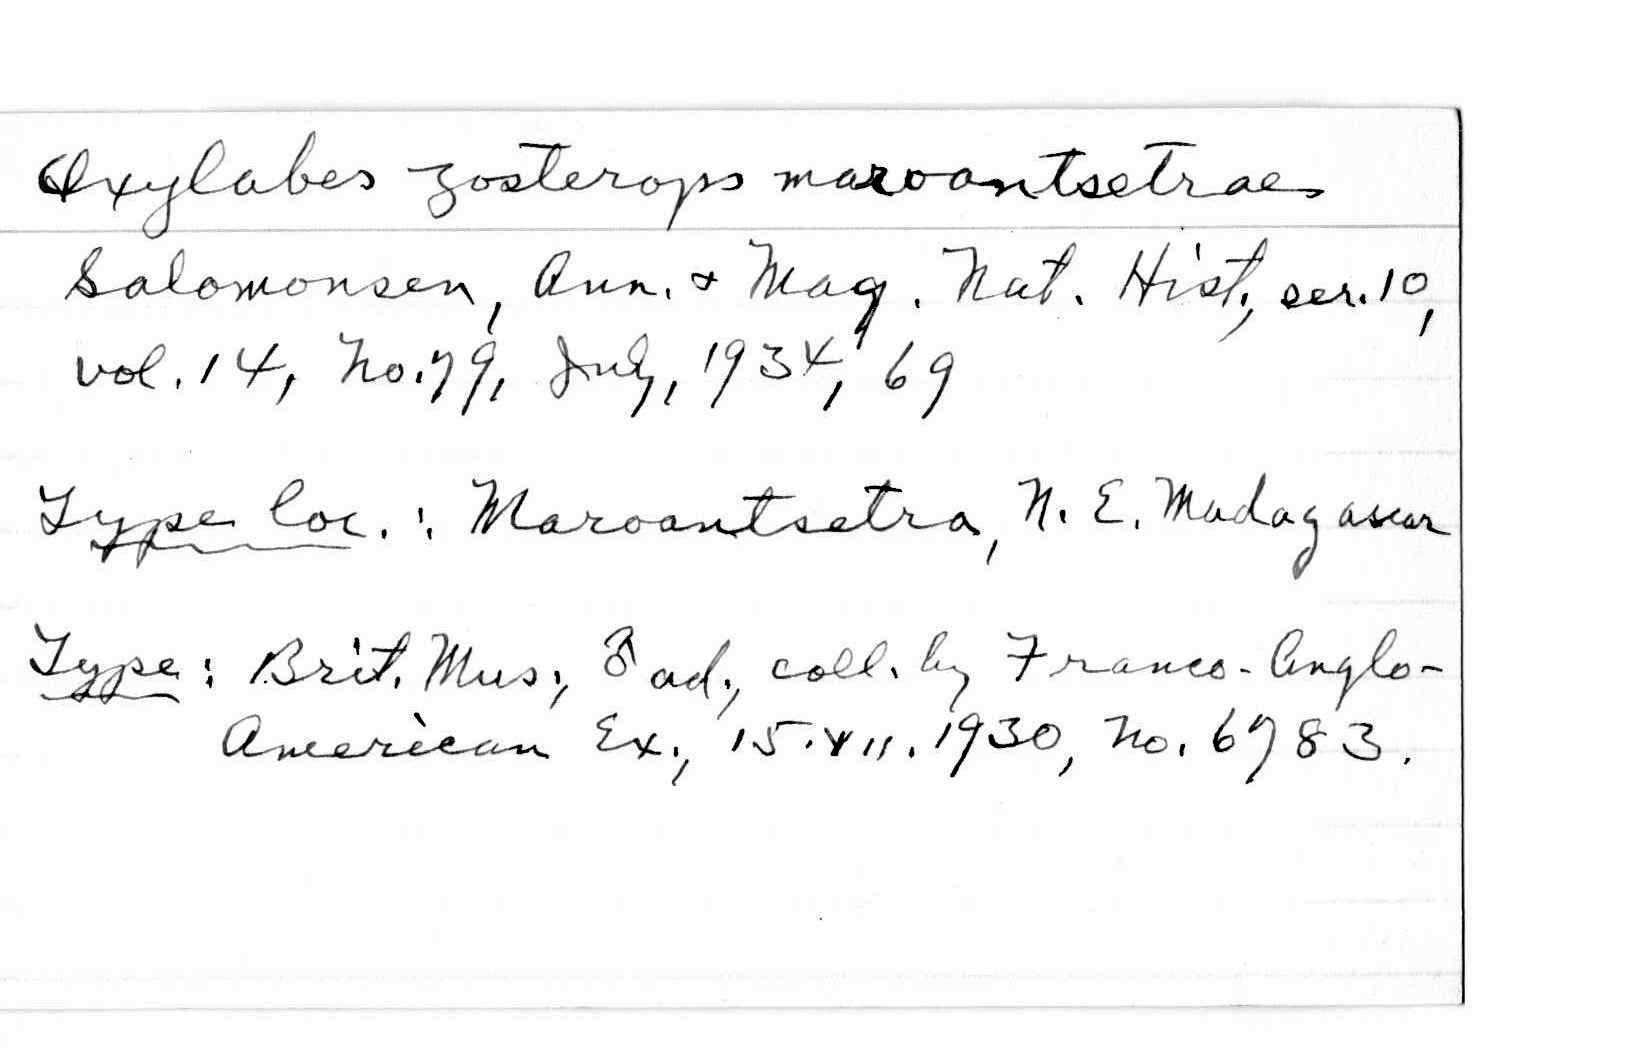 Oxylabes zosterops maroantsetrae
Salomonsen, Ann. & Mag. Nat. Hist., ser. 10,
vol. 14, no. 79, July, 1934, 69
Type loc.: Maroantsetra, N. E. Madagascar
Type: Brit. Mus., ♂ ad., coll. by Franco-Anglo-
American Ex., 15.XII.1930, no. 6783.